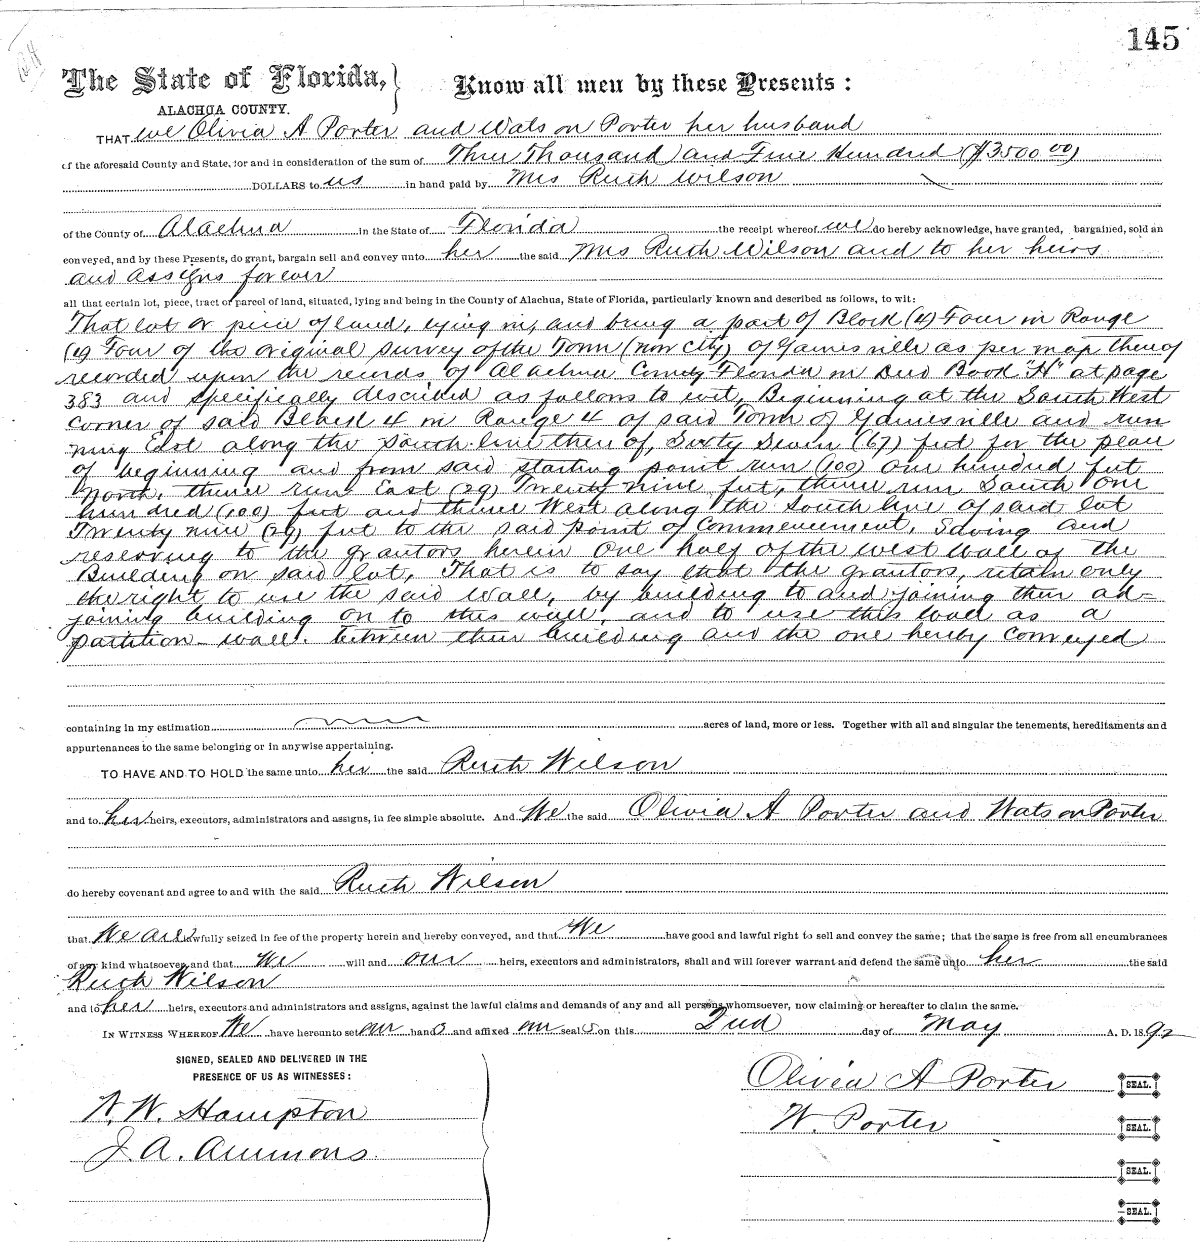 145
The State of Florida,
Know all men by these Presents:
ALACHUA COUNTY.
THAT we Olivia A Porter and Watson Porter her husband
of the aforesaid County and State, for and in consideration of the sum of Three Thousand and Five Hundred ($3500 00)
DOLLARS to us in hand paid by Mrs Ruth Wilson
of the County of Alachua in the State of Florida the receipt whereof we do hereby acknowledge, have granted, bargained, sold an
conveyed, and by these Presents, do grant, bargain sell and convey unto her the said Mrs Ruth Wilson and to her heirs
and assigns forever
all that certain lot, piece, tract or parcel of land, situated, lying and being in the County of Alachua, State of Florida, particularly known and described as follows, to wit:
That lot or piece of land, lying in, and being a part of Block (4) Four in Range
(4) Four of the original survey of the Town (now city) of Gainesville as per map thereof
recorded upon the records of Alachua County Florida in Deed Book "H" at page
383 and specifically described as follows to wit, Beginning at the South West
corner of said Block 4 in Range 4 of said Town of Gainesville and run
ning East along the South line there of, Sixty Seven (67) feet for the place
of beginning and from said starting point run (100) one hundred feet
North, thence run East (29) Twenty nine feet, thence run South one
hundred (100) feet and thence West along the South line of said lot
Twenty nine (29) feet to the said point of Commencement, Saving and
reserving to the grantors herein One half of the west wall of the
Building on said lot, That is to say that the grantors, retain only
the right to use the said wall, by building to and joining their ad=
joining building on to this wall, and to use this wall as a
partition wall. between their building and the one hereby conveyed
containing in my estimation acres of land, more or less. Together with all and singular the tenements, hereditaments and
appurtenances to the same belonging or in anywise appertaining.
TO HAVE AND TO HOLD the same unto her the said Ruth Wilson
and to her heirs, executors, administrators and assigns, in fee simple absolute. And We the said Olivia A Porter and Watson Porter
do hereby covenant and agree to and with the said Ruth Wilson
that We are lawfully seized in fee of the property herein and hereby conveyed, and that We have good and lawful right to sell and convey the same; that the same is free from all encumbrances
of any kind whatsoever, and that We will and our heirs, executors and administrators, shall and will forever warrant and defend the same unto her the said
Ruth Wilson
and to her heirs, executors and administrators and assigns, against the lawful claims and demands of any and all persons whomsoever, now claiming or hereafter to claim the same.
IN WITNESS WHEREOF We have hereunto set our hands and affixed our seals on this 2nd day of May A. D. 1892
SIGNED, SEALED AND DELIVERED IN THE
PRESENCE OF US AS WITNESSES:
Olivia A Porter SEAL.
W. W. Hampton
W. Porter SEAL.
J. A. Ammons
SEAL.
SEAL.